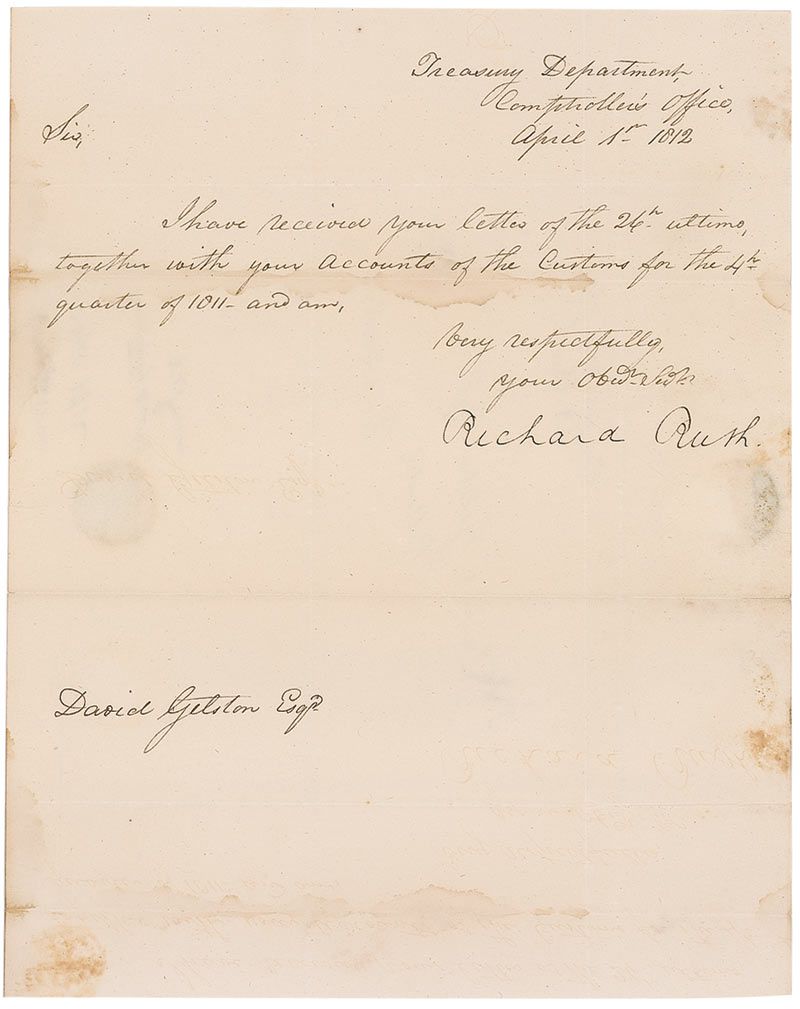 Treasury Department,
Comptroller's Office,
April 1st 1812
Sir,
I have received your letter of the 26th ultimo,
together with your Accounts of the Customs for the 4th
quarter of 1811 - and am,
Very respectfully,
your Obedt. Servt.
Richard Rush.
David Gelston Esqr.